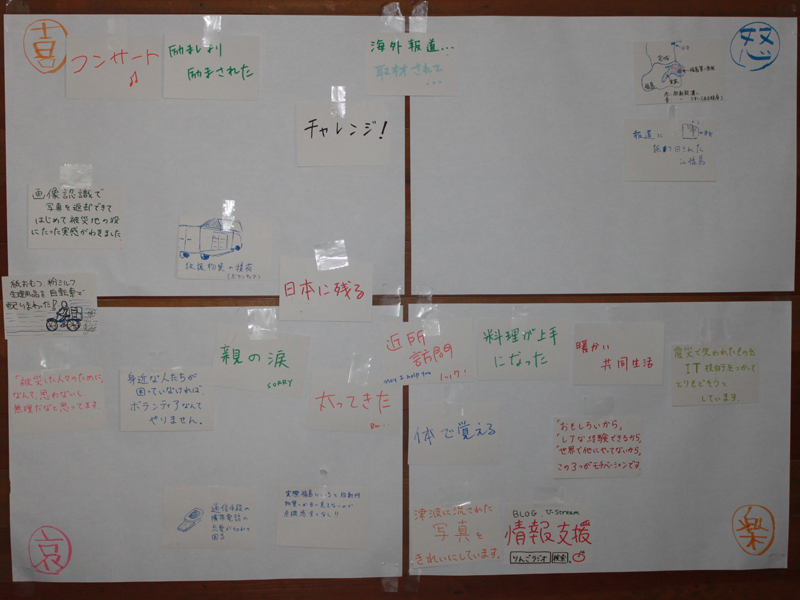 喜
コンサート
励ますより
励まされた
海外報道...
取材されて...
怒
宮城
福島
チャレンジ!
報道に
画像認識で
写真を返却できて
はじめて被災地の役
にたった実感がわきました
救援物資の積荷
(ボランティア)
日本に残る
紙おむつ、粉ミルク
生理用品を自転車で
配りまわった!
近所
訪問
may I help you
料理が上手
になった
暖かい
共同生活
震災で失われたものを
IT技術をつかって
とりもどそうと
しています。
親の涙
sorry
「被災した人々のために、
なんて、思わないし
無理だなと思ってます
身近な人たちが
困っていなければ、
ボランティアなんて
やりません。
太ってきた
体で覚える
"おもしろいから、
"レアな経験できるから、
"世界で他にやってないから、
この3つがモチベーションです。
通信手段の
携帯電話の
困る
実際福島にいると放射性
物質が目に見えないので
危機感すくなし!!
津波に流された
写真を
きれいにしています。
BLOG U-stream
情報支援
りんごラジオ 検索
哀
楽